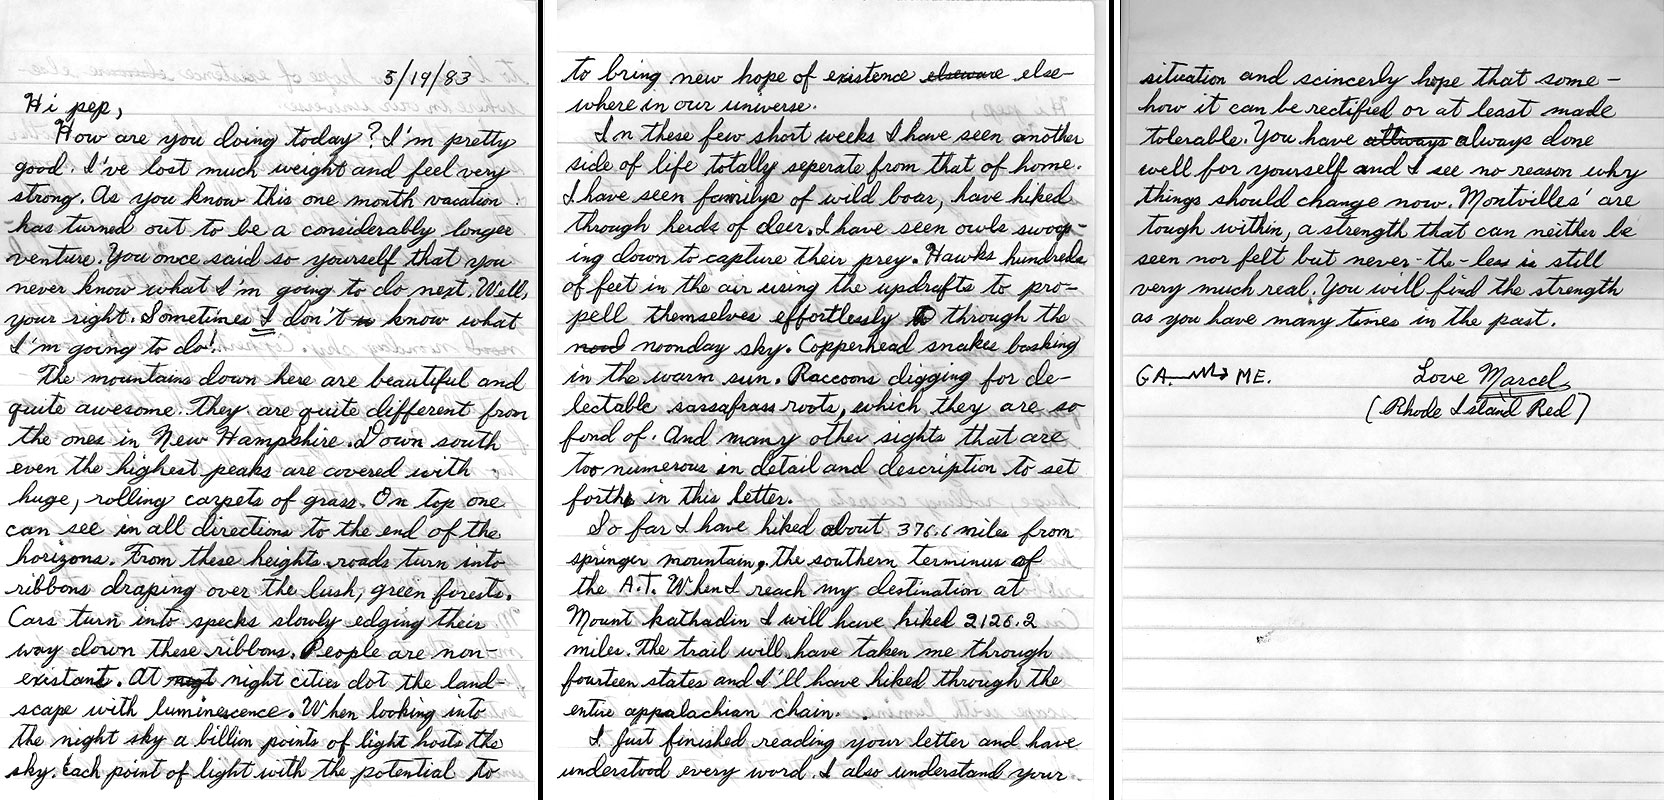 5/19/83
Hi pep,
How are you doing today? I'm pretty
good. I've lost much weight and feel very
strong. As you know this one month vacation
has turned out to be a considerably longer
venture. You once said so yourself that you
never know what I'm going to do next. Well,
your right. Sometimes I don't know what
I'm going to do!
The mountains down here are beautiful and
quite awesome. They are quite different from
the ones in New Hampshire. Down south
even the highest peaks are covered with
huge, rolling carpets of grass. On top one
can see in all directions to the end of the
horizons. From these heights roads turn into
ribbons draping over the lush, green forests.
Cars turn into specks slowly edging their
way down these ribbons. People are non-
existant. At night cities dot the land-
scape with luminescence. When looking into
the night sky a billion points of light hosts the
sky. Each point of light with the potential to
to bring new hope of existence elseware else-
where in our universe.
In these few short weeks I have seen another
side of life totally seperate from that of home.
I have seen familys of wild boar, have hiked
through herds of deer. I have seen owls swoop-
ing down to capture their prey. Hawks hundreds
of feet in the air using the updrafts to pro-
pell themselves effortlessly through the
nood noonday sky. Copperhead snakes basking
in the warm sun. Raccoons digging for de-
lectable sassafrass roots, which they are so
fond of. And many other sights that are
too numerous in detail and description to set
forth in this letter.
So far I have hiked about 376.6 miles from
springer mountain, the southern terminus of
the A.T. When I reach my destination at
Mount kathadin I will have hiked 2126.2
miles. The trail will have taken me through
fourteen states and I'll have hiked through the
entire appalachian chain.
I Just finished reading your letter and have
understood every word. I also understand your
situation and scincerly hope that some-
how it can be rectified or at least made
tolerable. You have allways always done
well for yourself and I see no reason why
things should change now. Montvilles' are
tough within, a strength that can neither be
seen nor felt but never-the-less is still
very much real. You will find the strength
as you have many times in the past.
GA. ME.
Love Marcel
(Rhode Island Red)